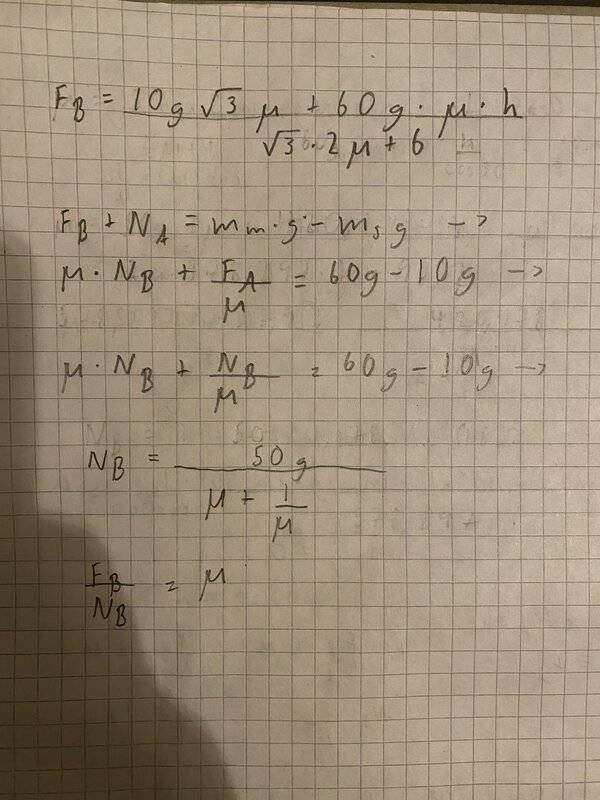 F_B = (10g √3 μ + 60g · μ · h) / (√3 · 2μ + 6)
F_B + N_A = m_m · g - m_s g →
μ · N_B + F_A/μ = 60g - 10g →
μ · N_B + N_B/μ = 60g - 10g →
N_B = 50g / (μ + 1/μ)
F_B/N_B = μ